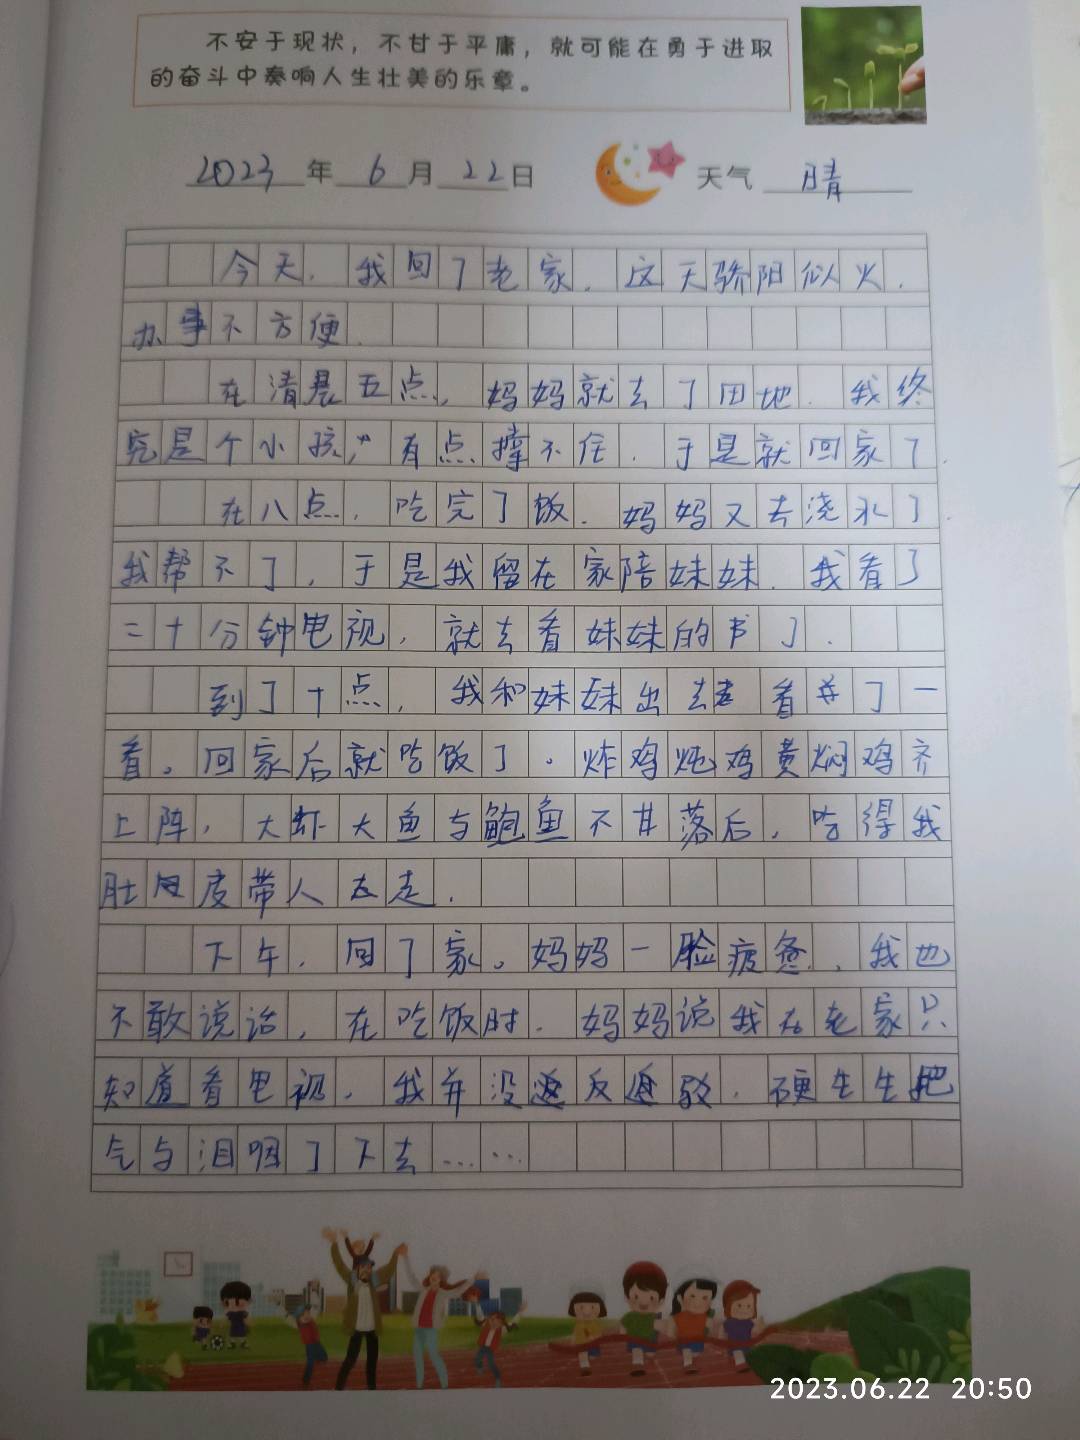 不安于现状，不甘于平庸，就可能在勇于进取
的奋斗中奏响人生壮美的乐章。
2023年6月22日 天气 晴
今天，我回了老家．这天骄阳似火．
办事不方便．
在清晨五点，妈妈就去了田地．我终
究是个小孩，有点撑不住．于是就回家了．
在八点．吃完了饭．妈妈又去浇水了．
我帮不了，于是我留在家陪妹妹．我看了
二十分钟电视，就去看妹妹的书了．
到了十点，我和妹妹出去看了一
看。回家后就吃饭了。炸鸡炖鸡黄焖鸡齐
上阵，大虾大鱼与鲍鱼不甘落后，吃得我
肚皮带人走．
下午．回了家。妈妈一脸疲惫．我也
不敢说话，在吃饭时．妈妈说我在老家只
知道看电视．我并没反驳．硬生生把
气与泪咽了下去……
2023.06.22 20:50